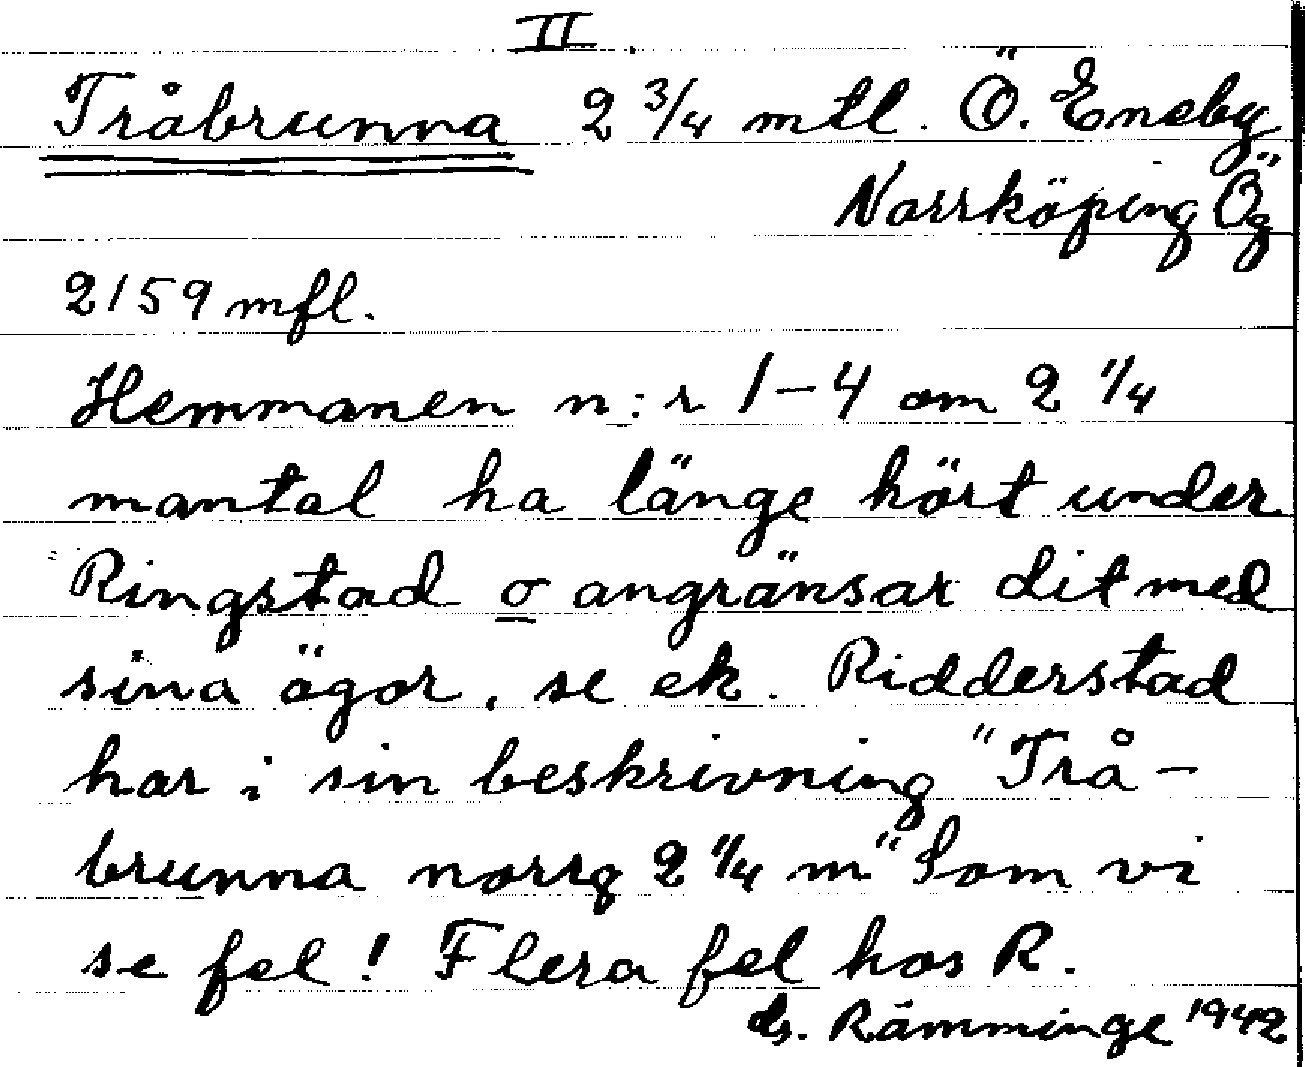 II.
Tråbrunna 2 3/4 mtl. Ö. Eneby
Norrköping Ög
2159 mfl.
Hemmanen n:r 1-4 om 2 1/4
mantal ha länge hört under
Ringstad o angränsar dit med
sina ägor, se ek. Ridderstad
har i sin beskrivning "Trå-
brunna norrg 2 1/4 m" Som vi
se fel! Flera fel hos R.
ds. Rämminge 1942